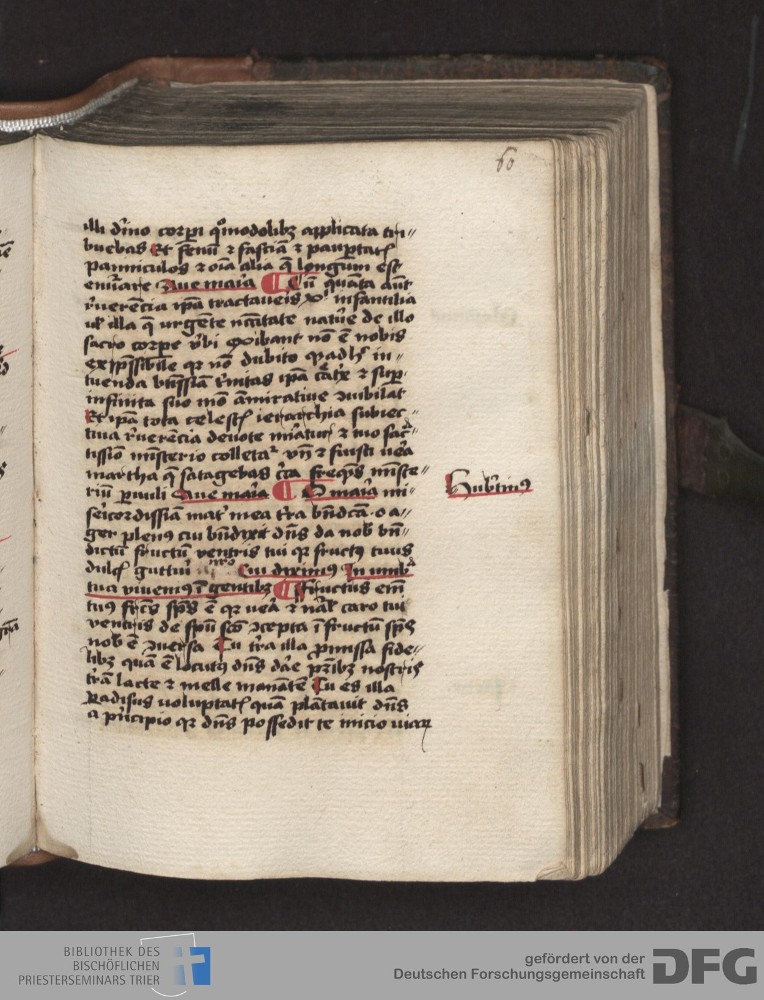 60
illi dīno corpi qōmodolibz applicata tri⸗
buebas Et fenū ⁊ fasciā ⁊ paupertatē
panniculos ⁊ oīa alia q̄ longum est
enarrare Aue maria Cū quāta aūt
r̄uerēcia ip̄a tractaueris infantilia
ul̓ illa q̄ urgēte nc̄itate nature de illo
sacro corpe exibant nō ē nobis
exp̄ssibile qr nō dubito in⸗
tuenda trinitas ip̄a ⁊ sup
infinita suo mō āmiratiue iubilat
Et ip̄a tota celestis ierarchia subiec⸗
tiua r̄uerēcia deuote mirat̄ ⁊ tuo sac̄⸗
tissimo misterio colletat̄ vn̄ ⁊ fuisti uera
martha q̄ satagebas cīca freqn̄s mīste⸗
riū paruuli Aue maria O maria mi⸗
sericordissīa mat̄ mea tr̄a bn̄dc̄ā o a⸗
ger plenus cui bn̄dixit dn̄s da nob̄ bn̄⸗
dictū fructū ventris tui qr fructus tuus
dulcis gutturi nr̄o Cui diximus In umbra
tua viuemus ī gentibz Fructus em̄
tuus sps̄ ē qr uera ⁊ nal̓ caro tui
ventris de spū scō ꝯcepta ī fructū sps̄
nob̄ ē ꝯuersa Tu tr̄a illa p̄missa fide⸗
libz quā ē locutus dn̄s dare pr̄ibz nostris
tr̄ā lacte ⁊ melle manātē Tu es illa
padisus voluptatis quā plātauit dn̄s
a p̄ncipio qr dn̄s possedit te inicio uiarum
Hubtinus
BIBLIOTHEK DES
BISCHÖFLICHEN
PRIESTERSEMINARS TRIER
gefördert von der
Deutschen Forschungsgemeinschaft
DFG